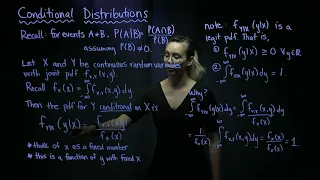 Conditional Distributions
Recall: for events A+B, P(A|B) = P(A∩B)/P(B)
assuming P(B)≠0.
Let X and Y be continuous random variables
with joint pdf f_{X,Y}(x,y).
Recall f_X(x) = ∫_{-∞}^{∞} f_{X,Y}(x,y)dy.
Then the pdf for Y conditional on X is
f_{Y|X}(y|x) = f_{X,Y}(x,y)/f_X(x)
* think of x as a fixed number
* this is a function of y with fixed X
note: f_{Y|X}(y|x) is a
legit pdf. That is,
① f_{Y|X}(y|x) ≥ 0 ∀y∈ℝ
② ∫_{-∞}^{∞} f_{Y|X}(y|x)dy = 1.
Why?
∫_{-∞}^{∞} f_{Y|X}(y|x)dy = ∫_{-∞}^{∞} f_{X,Y}(x,y)/f_X(x) dy
= 1/f_X(x) ∫_{-∞}^{∞} f_{X,Y}(x,y)dy = f_X(x)/f_X(x) = 1.